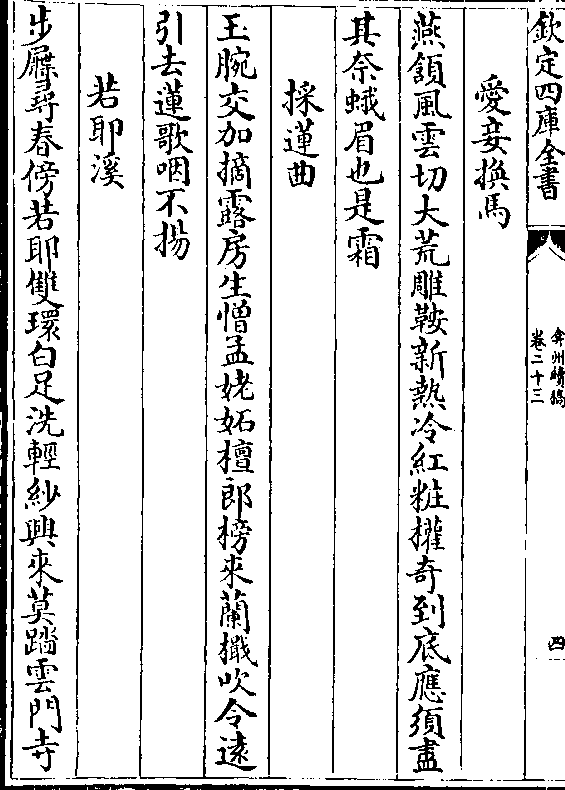 欽定四庫全書
弇州續稿
卷二十三
四
愛妾換馬
燕頷風雲切大荒雕鞍新熱冷紅粧權奇到底應須盡
其奈蛾眉也是霜
採蓮曲
玉腕交加摘露房生憎孟姥妬檀郎榜來蘭檝吹令遠
引去蓮歌咽不揚
若耶溪
步屧尋春傍若耶雙環白足洗輕紗興來莫踏雲門寺